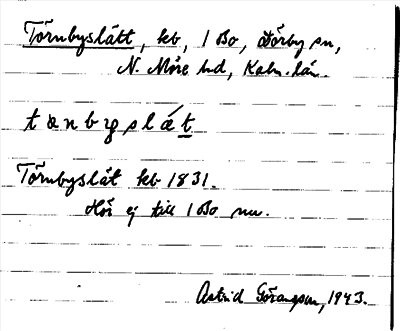 Törnbyslätt, kb, 1 Bo, Dörby sn,
N. Möre hd, Kalm. län.
tœnbyslǽt
Törnbyslät kb 1831.
Hör ej till 1 Bo nu.
Astrid Göransson, 1943.